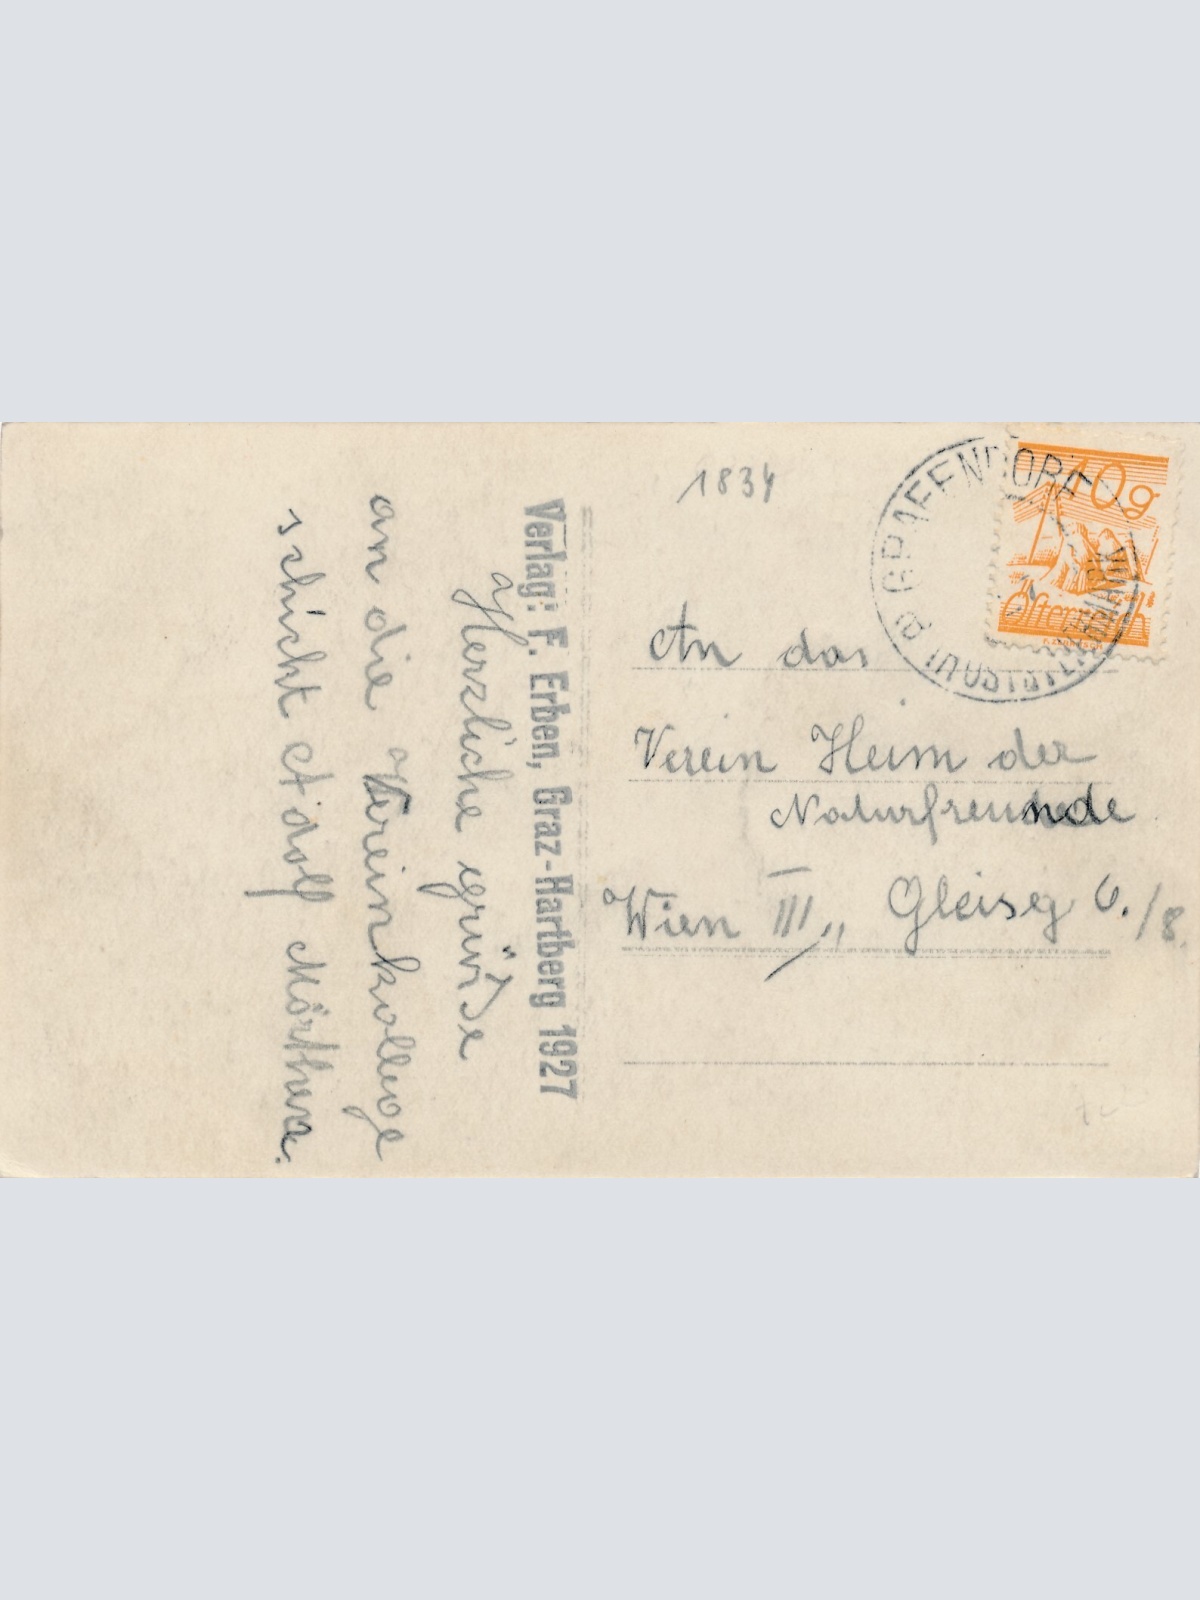 Herzliche grüße
an die Vereinkollege
schickt Adolf
Verlag: F. Erben, Graz-Hartberg 1927
1834
An das
Verein Heim der
Naturfreunde
Wien III., Gleisg 6./8.
GRAFENDORF
in OSTSTEIERMARK
a
10 g
Österreich